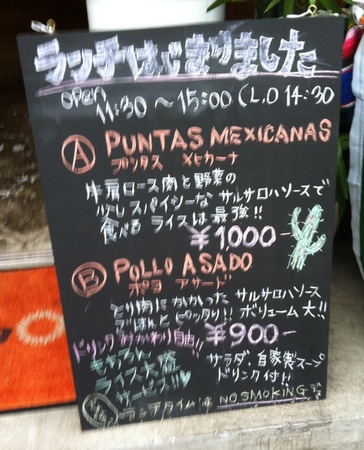 ランチはじまりました
open 11:30 ～ 15:00 (L.O 14:30
A PUNTAS MEXICANAS
プンタス メヒカーナ
牛肩ロース肉と野菜の
少しスパイシーな サルサロハソースで
食べる ライスは最強!!
¥1,000
B POLLO ASADO
ポヨ アサード
とり肉にかかった サルサロハソース
ごはんとピッタリ!! ボリューム大!!
ドリンクおかわり自由!! ¥900-
もちろん サラダ、自家製スープ
ライス大盛 ドリンク付!!
サービス!!
ランチタイムは NO SMOKING です